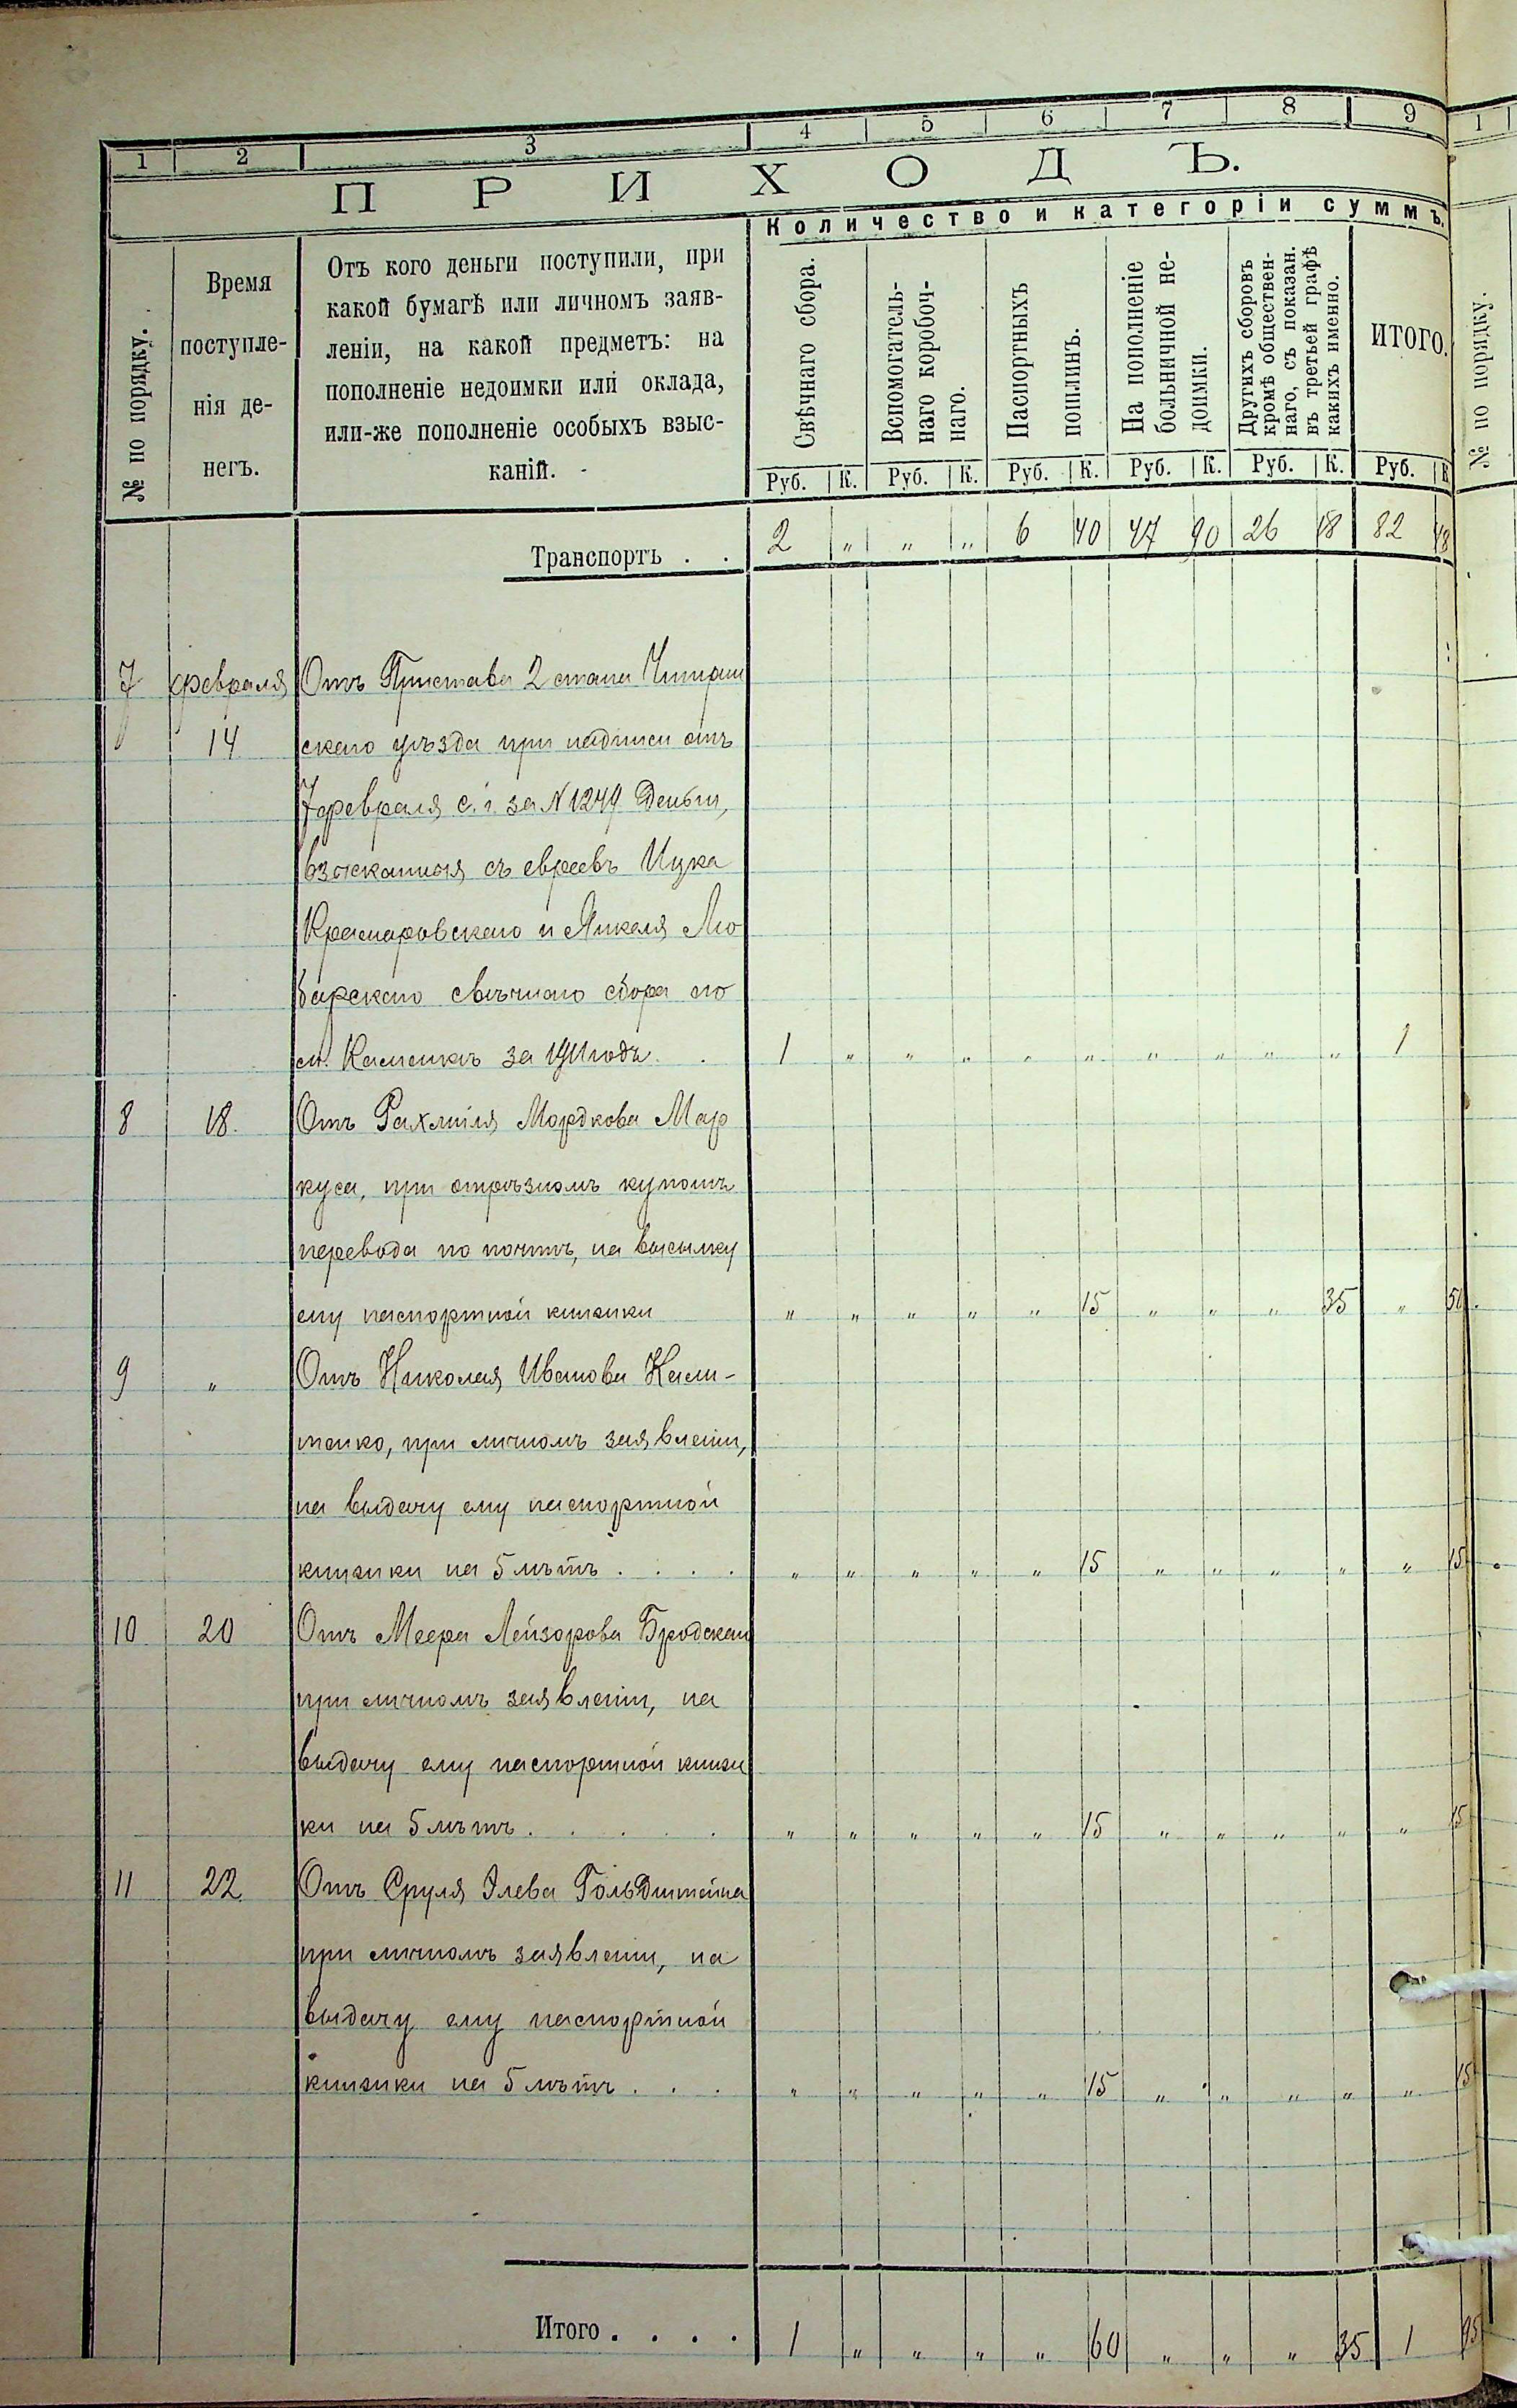 1 2 3 4 5 6 7 8 9 1
ПРИХОДЪ.
Количество и категоріи суммъ.
№ по порядку.
Время
поступле-
нія де-
негъ.
Отъ кого деньги поступили, при
какой бумагѣ или личномъ заяв-
леніи, на какой предметъ: на
пополненіе недоимки или оклада,
или-же пополненіе особыхъ взыс-
каній.
Свѣчнаго сбора.
Вспомогатель-
наго коробоч-
наго.
Паспортныхъ
пошлинъ.
На пополненіе
больничной не-
доимки.
Другихъ сборовъ
кромѣ обществен-
наго, съ показан.
въ третьей графѣ
какихъ именно.
ИТОГО.
№ по порядку.
Руб. К. Руб. К. Руб. К. Руб. К. Руб. К. Руб. К
Транспортъ . . 2 " " " 6 40 47 90 26 18 82 48
7 февраля Отъ Пристава 2 стана Чигирин
14 скаго уѣзда при надписи отъ
7 февраля с. г. за N 1249 Деньги,
взысканныя съ евреевъ Ицка
Крамаровскаго и Янкеля Лю
барскаго свѣчнаго сбора по
м. Каменкѣ за 1911 годъ . . 1 " " " " " " " " " 1
8 18. Отъ Рахмиля Мордкова Мар
куса, при отрѣзномъ купонѣ
перевода по почтѣ, на высылку
ему паспортной книжки " " " " " 15 " " " 35 " 50
9 " Отъ Николая Иванова Кали-
тенко, при личномъ заявленіи,
на выдачу ему паспортной
книжки на 5 лѣтъ . . . . " " " " " 15 " " " " " 15
10 20 Отъ Меера Лейзорова Бродскаго
при личномъ заявленіи, на
выдачу ему паспортной книж
ки на 5 лѣтъ . . . . . " " " " " 15 " " " " " 15
11 22. Отъ Сруля Элева Гольдштейна
при личномъ заявленіи, на
выдачу ему паспортной
книжки на 5 лѣтъ . . . " " " " " 15 " " " " " 15
Итого . . . . 1 " " " " 60 " " " 35 1 95